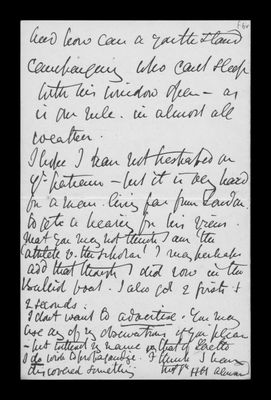 And how can a youth stand
campaigning who can't sleep
with his window open – as
is our rule. in almost all
weather.
I hope I have not trespassed on
yr. patience – but it is very hard
for a man living far from London
to get a hearing for his views.
That you may not think I am the
athlete v. the scholar I may perhaps
add that though I did row in the
Balliol boat. I also got 2 firsts &
2 seconds.
I don't want to advertise. You may
use any of my observations if you please
– but without my name or that of Loretto
I do wish to propagandize. I think I have
discovered something
H H Almond